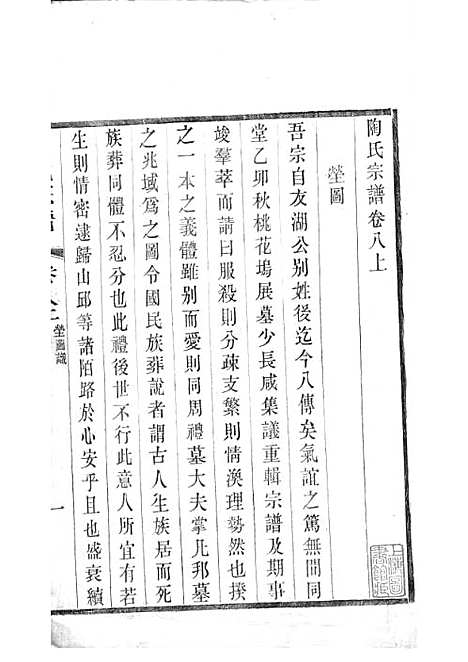 陶氏宗譜卷八上
塋圖
吾宗自友湖公別姓後迄今八傳矣氣誼之篤無間同
堂乙卯秋桃花塢展墓少長咸集議重輯宗譜及期事
竣羣萃而請曰服殺則分疏支繁則情渙理勢然也揆
之一本之義體雖别而愛則同周禮墓大夫掌凡邦墓
之兆域爲之圖令國民族葬說者謂古人生族居而死
族葬同體不忍分也此禮後世不行此意人所宜有若
生則情密逮歸山邱等諸陌路於心安乎且也盛衰續
塋圖識
一